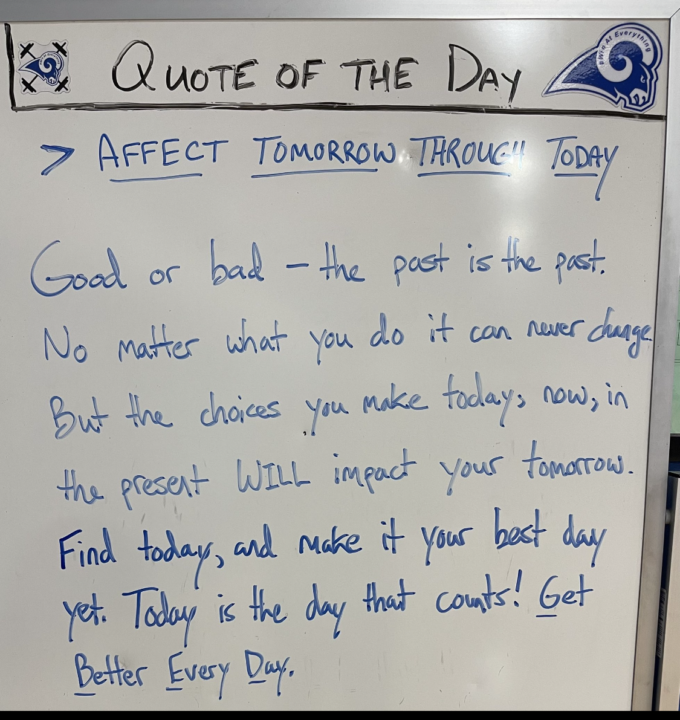 QUOTE OF THE DAY
#Win At Everything
> AFFECT TOMORROW THROUGH TODAY
Good or bad - the past is the past.
No matter what you do it can never change
But the choices you make today, now, in
the present WILL impact your tomorrow.
Find today, and make it your best day
yet. Today is the day that counts! Get
Better Every Day.